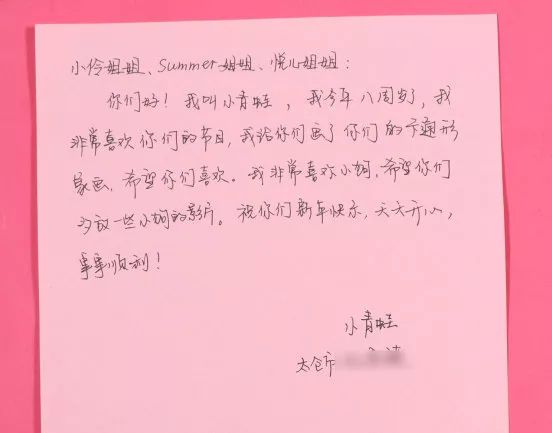 小伶姐姐、Summer姐姐、悦心姐姐：
你们好！我叫小青蛙，我今年八周岁了，我
非常喜欢你们的节目，我给你们画了你们的卡通形
象画，希望你们喜欢。我非常喜欢小狗，希望你们
多放一些小狗的影片。祝你们新年快乐，天天开心，
事事顺利！
小青蛙
太仓市